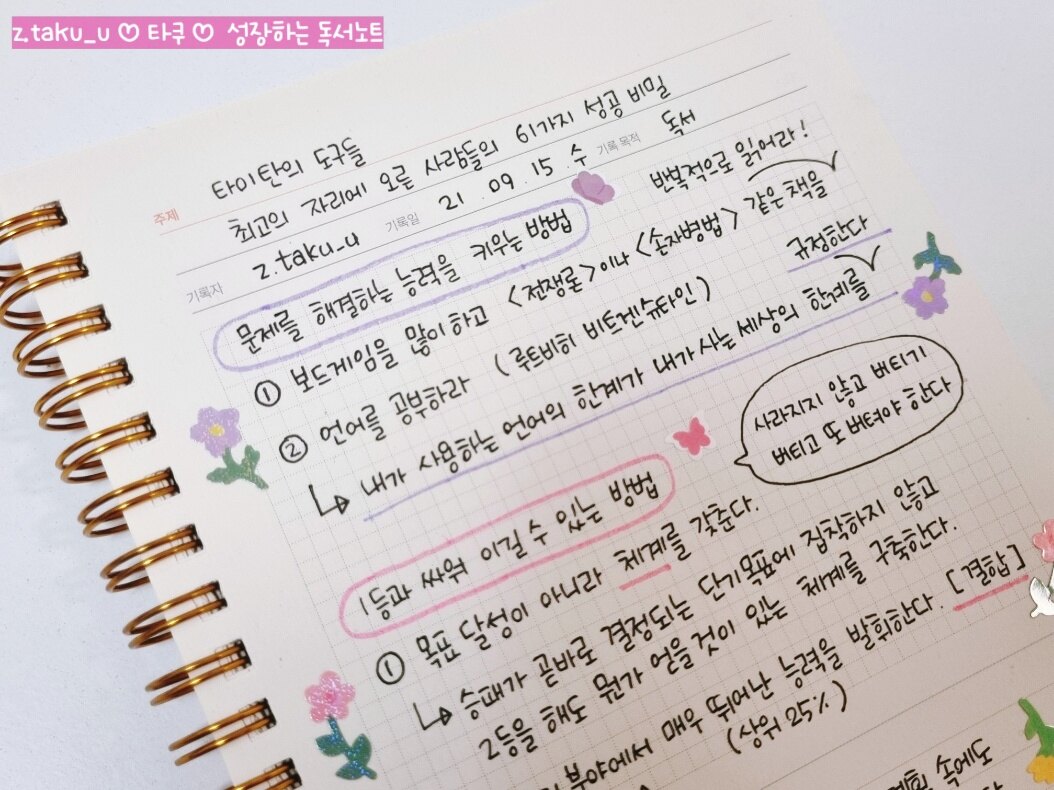 z.taku_u ♡ 타쿠 ♡ 성장하는 독서노트
주제 타이탄의 도구들
최고의 자리에 오른 사람들의 61가지 성공 비밀
기록자 z.taku_u 기록일 21 . 09 . 15 . 수 기록 목적 독서
문제를 해결하는 능력을 키우는 방법
반복적으로 읽어라!
① 보드게임을 많이 하고 <전쟁론>이나 <손자병법> 같은 책을
② 언어를 공부하라 (루트비히 비트겐슈타인)
규정한다
↳ 내가 사용하는 언어의 한계가 내가 사는 세상의 한계를
사라지지 않고 버티기
버티고 또 버텨야 한다
1등과 싸워 이길 수 있는 방법
① 목표 달성이 아니라 체계를 갖춘다.
↳ 승패가 곧바로 결정되는 단기목표에 집착하지 않고
2등을 해도 뭔가 얻을 것이 있는 체계를 구축한다.
분야에서 매우 뛰어난 능력을 발휘한다. [결합]
(상위 25%)
속에도